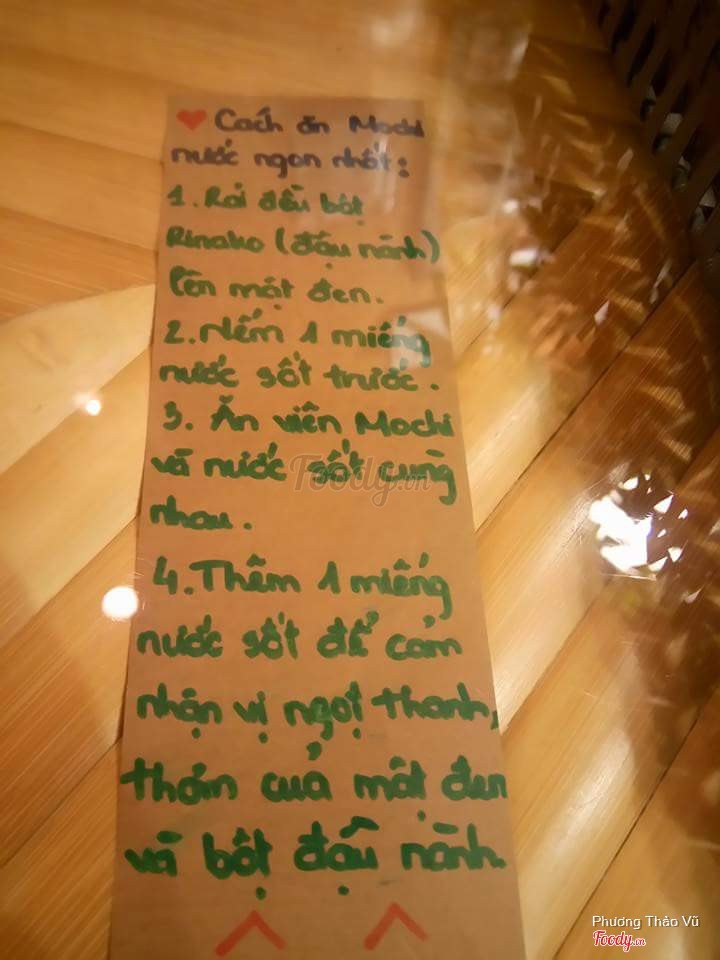 ❤ Cách ăn Mochi
nước ngon nhất:
1. Rải đều bột
Kinako (đậu nành)
lên mật đen.
2. Nếm 1 miếng
nước sốt trước.
3. Ăn viên Mochi
và nước sốt cùng
nhau.
4. Thêm 1 miếng
nước sốt để cảm
nhận vị ngọt thanh,
thơm của mật đen
và bột đậu nành.
Foody.vn
Phương Thảo Vũ
Foody.vn